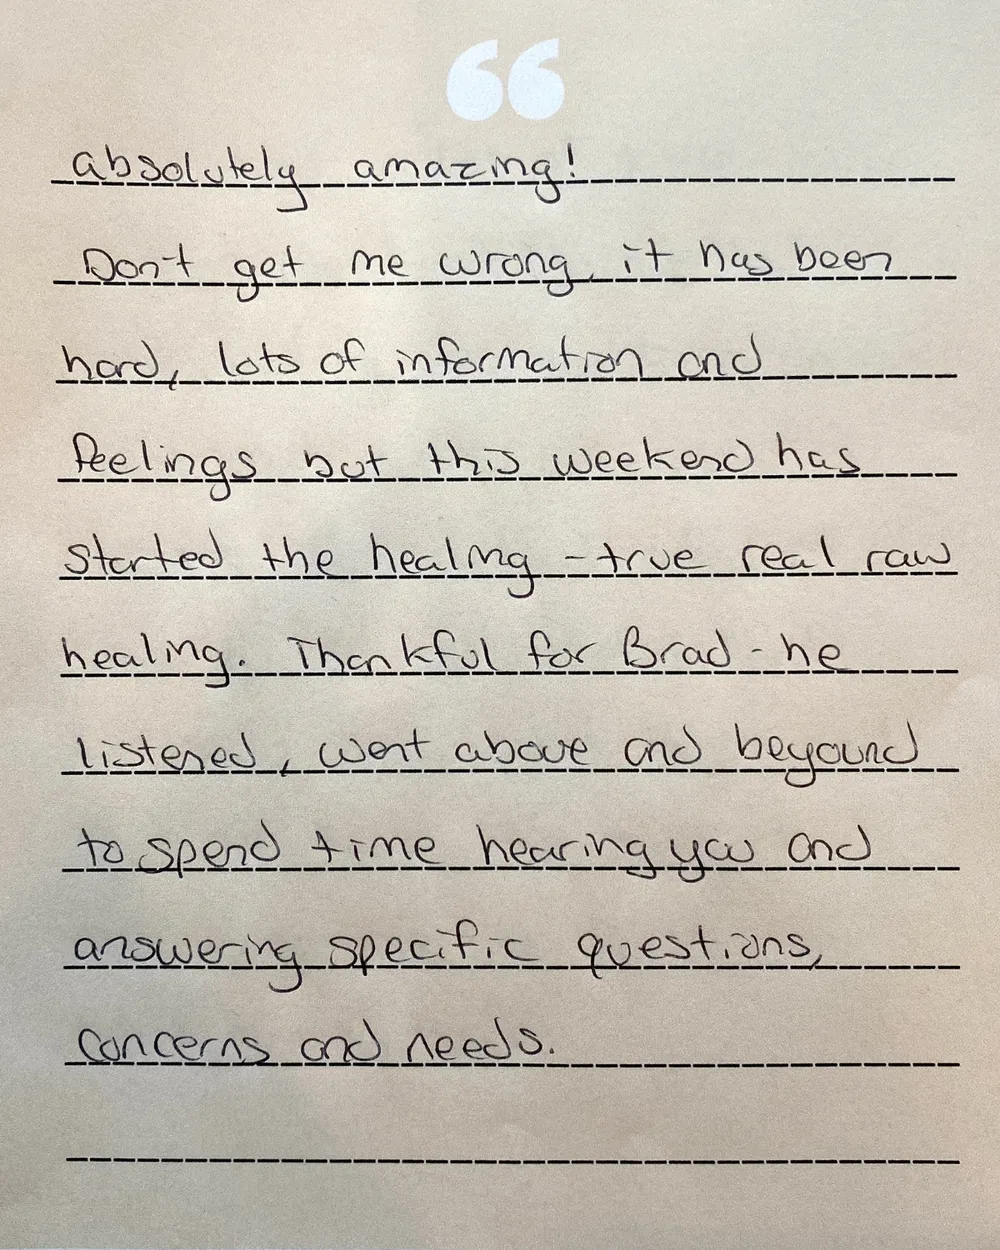 “
absolutely amazing!
Don't get me wrong, it has been
hard, lots of information and
feelings but this weekend has
started the healing - true real raw
healing. Thankful for Brad - he
listened, went above and beyound
to spend time hearing you and
answering specific questions,
concerns and needs.